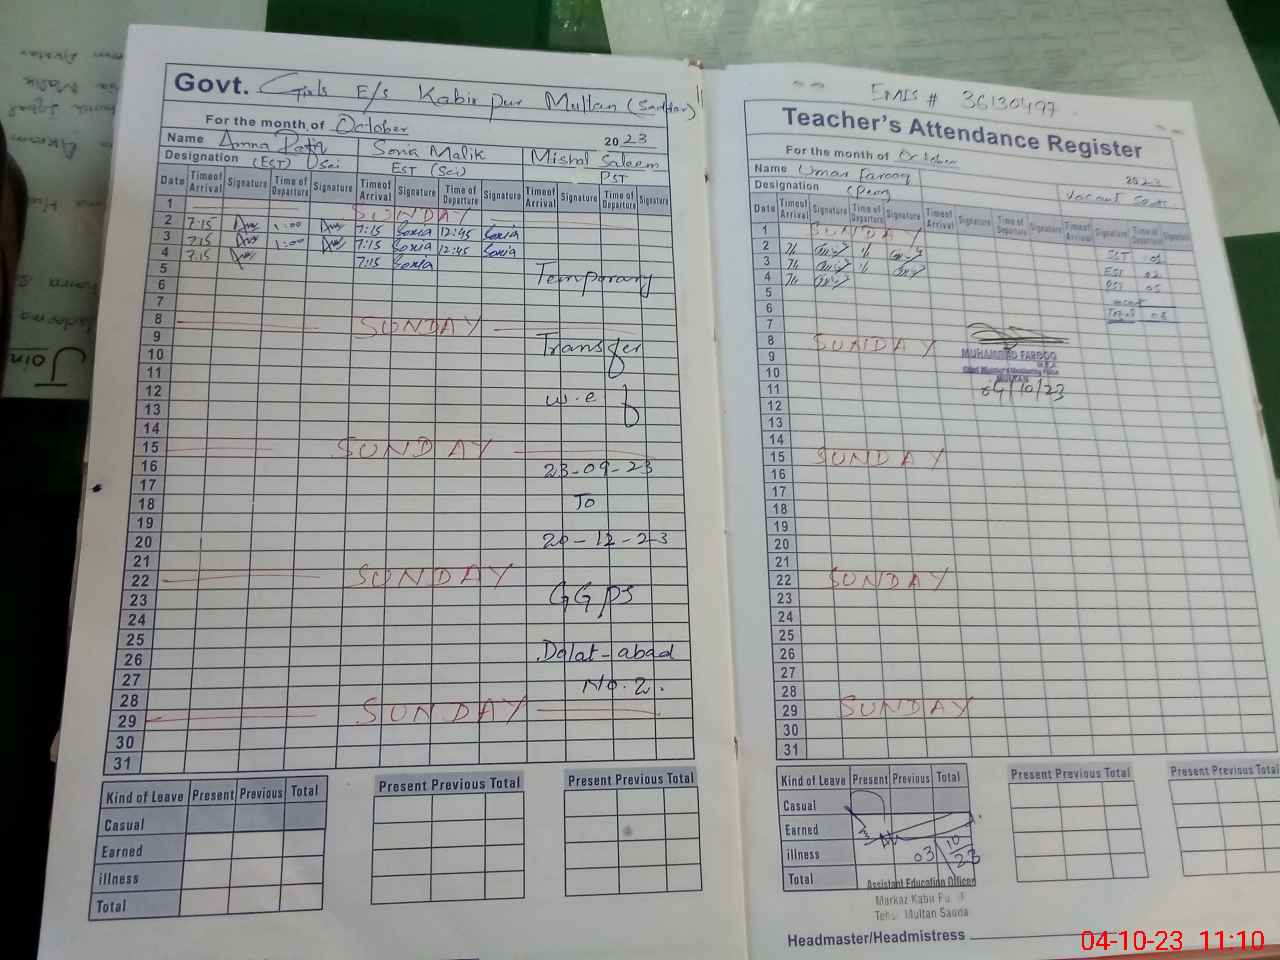 Govt. Girls E/s Kabir pur Multan (Saddar)
For the month of October 2023
Name Amna Sonia Malik Mishal Saleem
Designation (EST) Sci EST (Sci) PST
Date Time of Arrival Signature Time of Departure Signature Time of Arrival Signature Time of Departure Signature Time of Arrival Signature Time of Departure Signature
1 SUNDAY
2 7:15 1:00 7:15 Sonia 12:45 Sonia
3 7:15 1:00 7:15 Sonia 12:45 Sonia
4 7:15 7:15 Sonia
5 Temporary
6
7
8 SUNDAY
9 Transfer
10
11
12 w.e.f
13
14
15 SUNDAY
16 23-09-23
17
18 To
19
20 20-12-23
21
22 SUNDAY
23 GGPS
24
25
26 Dolat-abad
27 No.2.
28
29 SUNDAY
30
31
Kind of Leave Present Previous Total Present Previous Total Present Previous Total
Casual
Earned
illness
Total
EMIS # 36130497
Teacher's Attendance Register
For the month of October 2023
Name Umar Farooq
Designation Vacant Seats
Date Time of Arrival Signature Time of Departure Signature Time of Arrival Signature Time of Departure Signature Time of Arrival Signature Time of Departure Signature
1 SUNDAY
2 SST 01
3 EST 02
4 PST 05
5
6 Total 08
7
8 SUNDAY
9 MUHAMMAD FAROOQ
10 Chief Minister's Monitoring Force
MULTAN
11 04/10/23
12
13
14
15 SUNDAY
16
17
18
19
20
21
22 SUNDAY
23
24
25
26
27
28
29 SUNDAY
30
31
Kind of Leave Present Previous Total Present Previous Total Present Previous Total
Casual
Earned
illness 03/10/23
Total
Assistant Education Officer
Markaz Kabir Pur
Multan Sadda
Headmaster/Headmistress
04-10-23 11:10